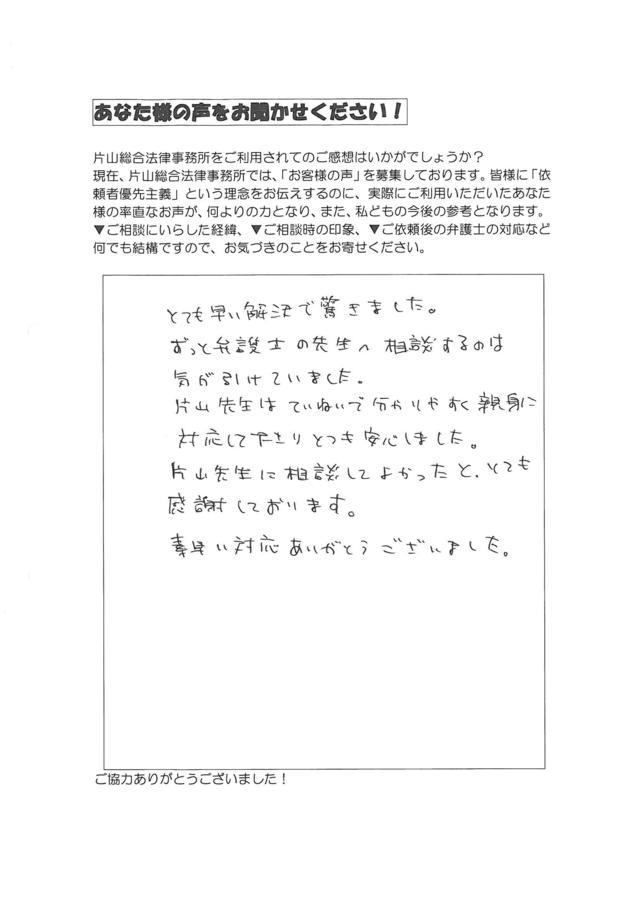 あなた様の声をお聞かせください！
片山総合法律事務所をご利用されてのご感想はいかがでしょうか？
現在、片山総合法律事務所では、「お客様の声」を募集しております。皆様に「依
頼者優先主義」という理念をお伝えするのに、実際にご利用いただいたあなた
様の率直なお声が、何よりの力となり、また、私どもの今後の参考となります。
▼ご相談にいらした経緯、▼ご相談時の印象、▼ご依頼後の弁護士の対応など
何でも結構ですので、お気づきのことをお寄せください。
とても早い解決で驚きました。
ずっと弁護士の先生へ相談するのは
気が引けていました。
片山先生はていねいで分かりやすく親身に
対応して下さりとても安心しました。
片山先生に相談してよかったと、とても
感謝しております。
素早い対応ありがとうございました。
ご協力ありがとうございました！